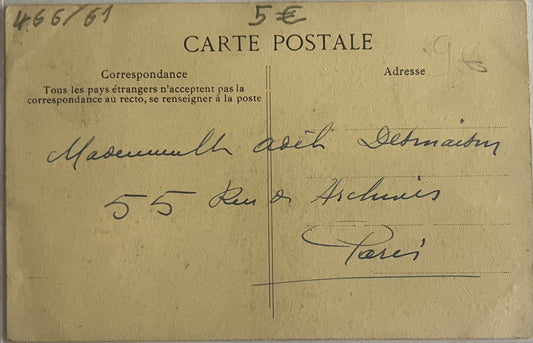 466/61
5€
CARTE POSTALE
Correspondance
Tous les pays étrangers n'acceptent pas la
correspondance au recto, se renseigner à la poste
Adresse
Mademoiselle Adèle Desmaison
55 Rue des Archives
Paris